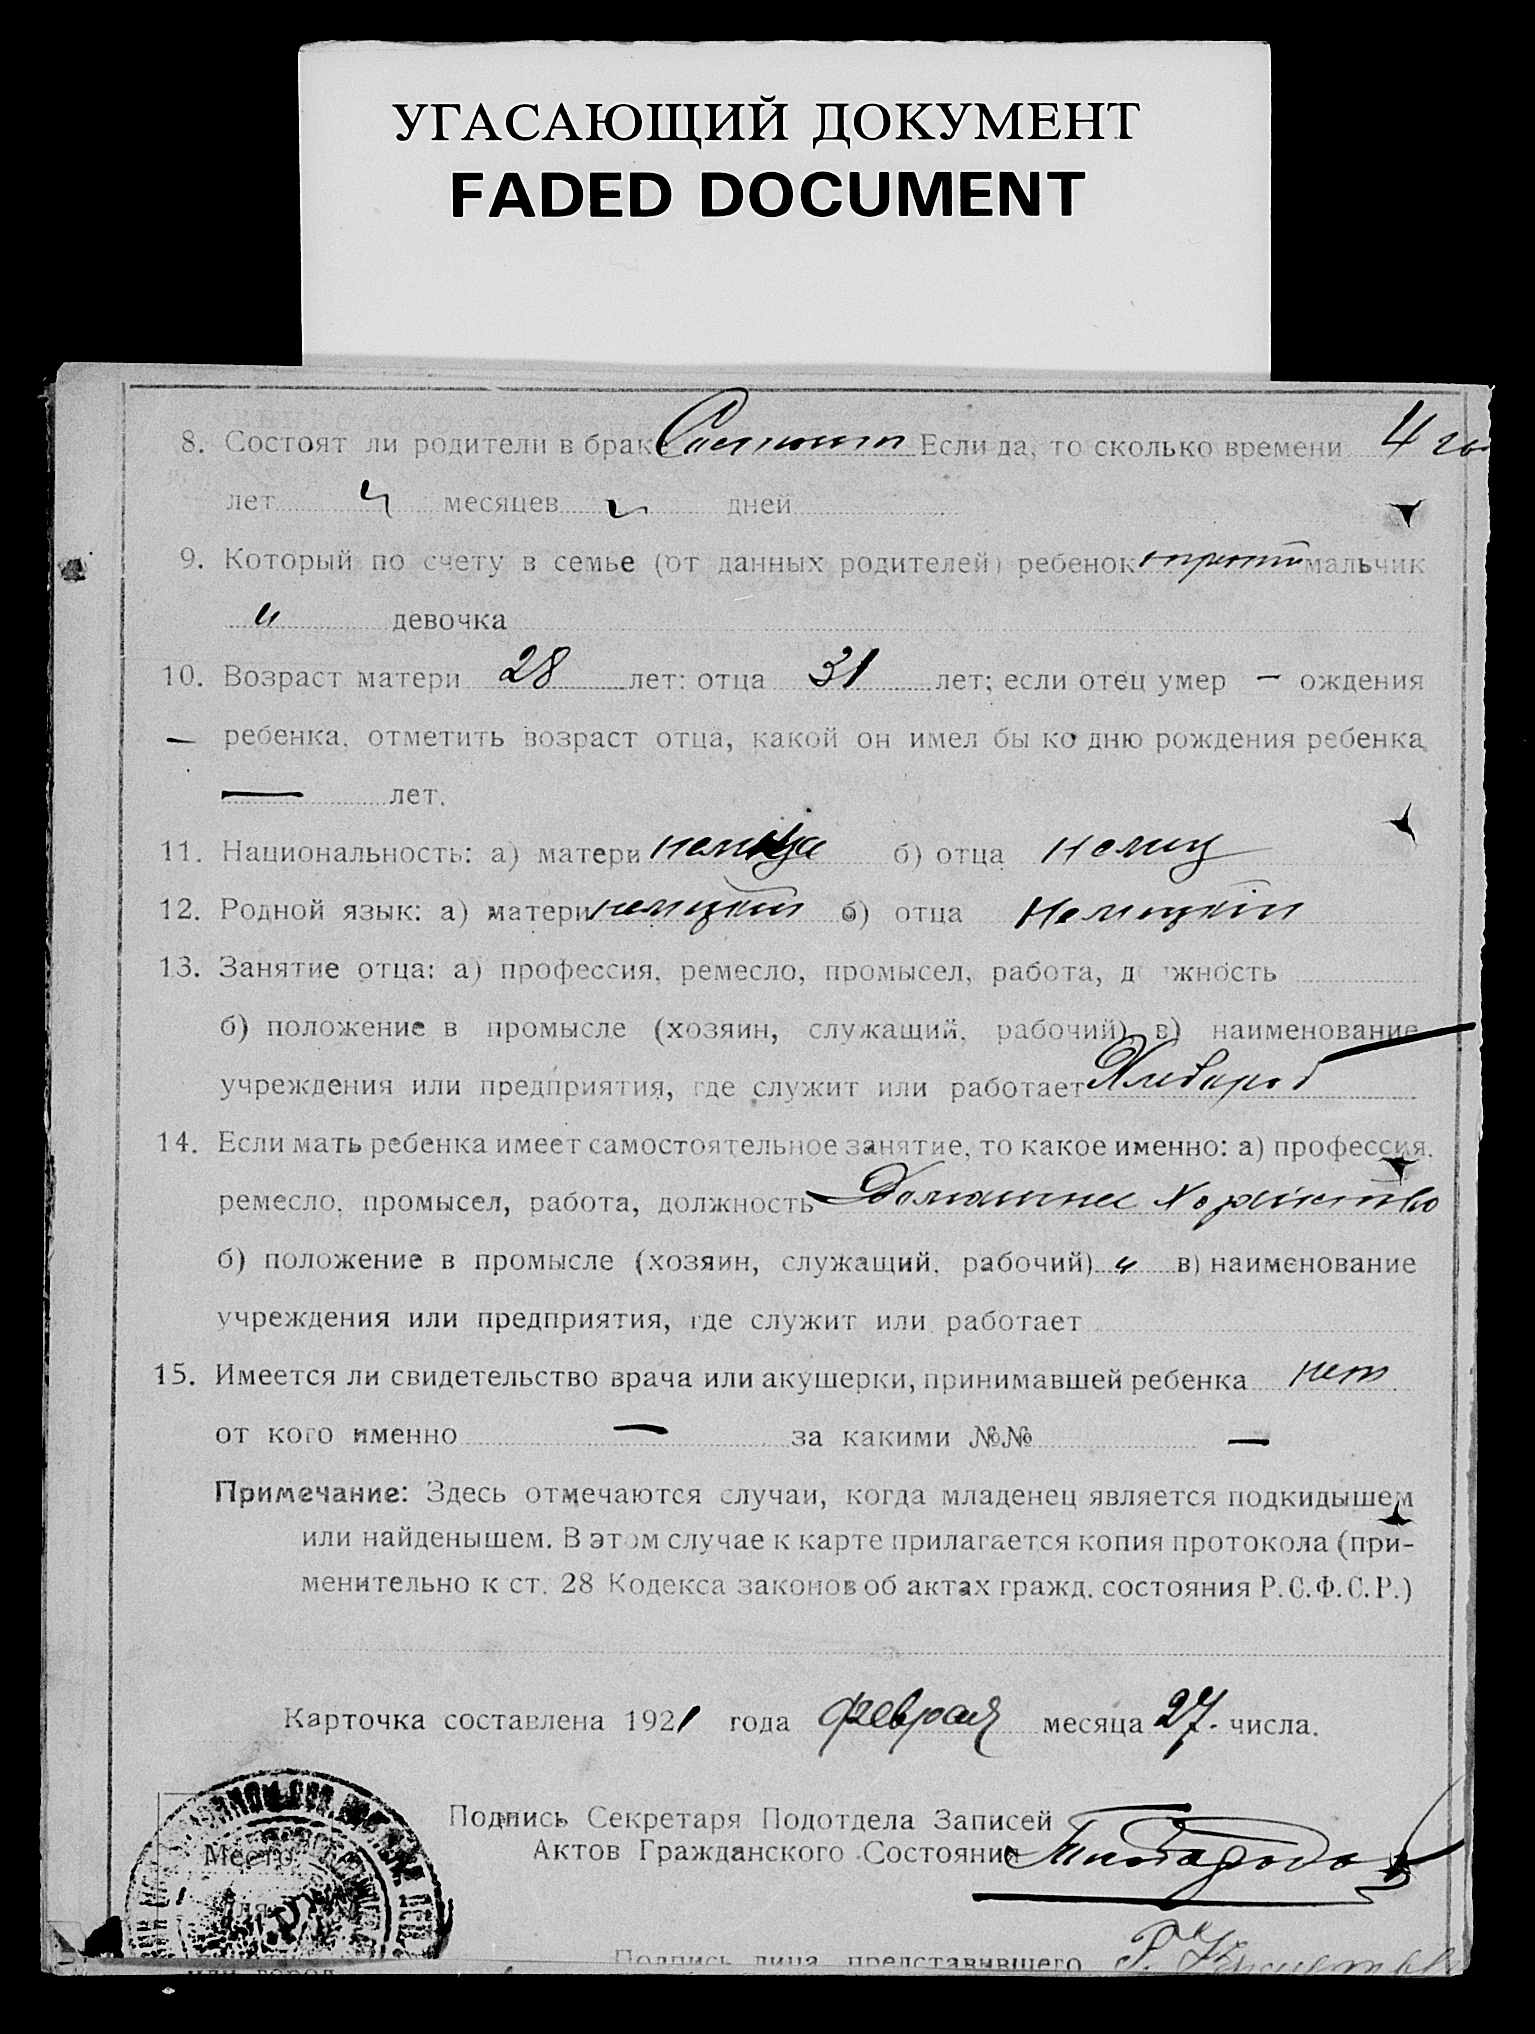 УГАСАЮЩИЙ ДОКУМЕНТ
FADED DOCUMENT
8. Состоят ли родители в браке Состоят Если да, то сколько времени 4 го
лет ч месяцев дней
9. Который по счету в семье (от данных родителей) ребенок третий мальчик
и девочка
10. Возраст матери 28 лет: отца 31 лет; если отец умер — ождения
— ребенка, отметить возраст отца, какой он имел бы ко дню рождения ребенка
— лет.
11. Национальность: а) матери немица б) отца немиц
12. Родной язык: а) матери немицкий б) отца Немицкий
13. Занятие отца: а) профессия, ремесло, промысел, работа, должность
б) положение в промысле (хозяин, служащий, рабочий) в) наименование
учреждения или предприятия, где служит или работает Хлебороб
14. Если мать ребенка имеет самостоятельное занятие, то какое именно: а) профессия,
ремесло, промысел, работа, должность Домашнее Хозяйство
б) положение в промысле (хозяин, служащий, рабочий) ч в) наименование
учреждения или предприятия, где служит или работает
15. Имеется ли свидетельство врача или акушерки, принимавшей ребенка нет
от кого именно — за какими №№ —
Примечание: Здесь отмечаются случаи, когда младенец является подкидышем
или найденышем. В этом случае к карте прилагается копия протокола (при-
менительно к ст. 28 Кодекса законов об актах гражд. состояния Р.С.Ф.С.Р.)
Карточка составлена 1921 года февраля месяца 27. числа.
Подпись Секретаря Подотдела Записей
Актов Гражданского Состояния
Место
для
Подпись лица, представившего
или город